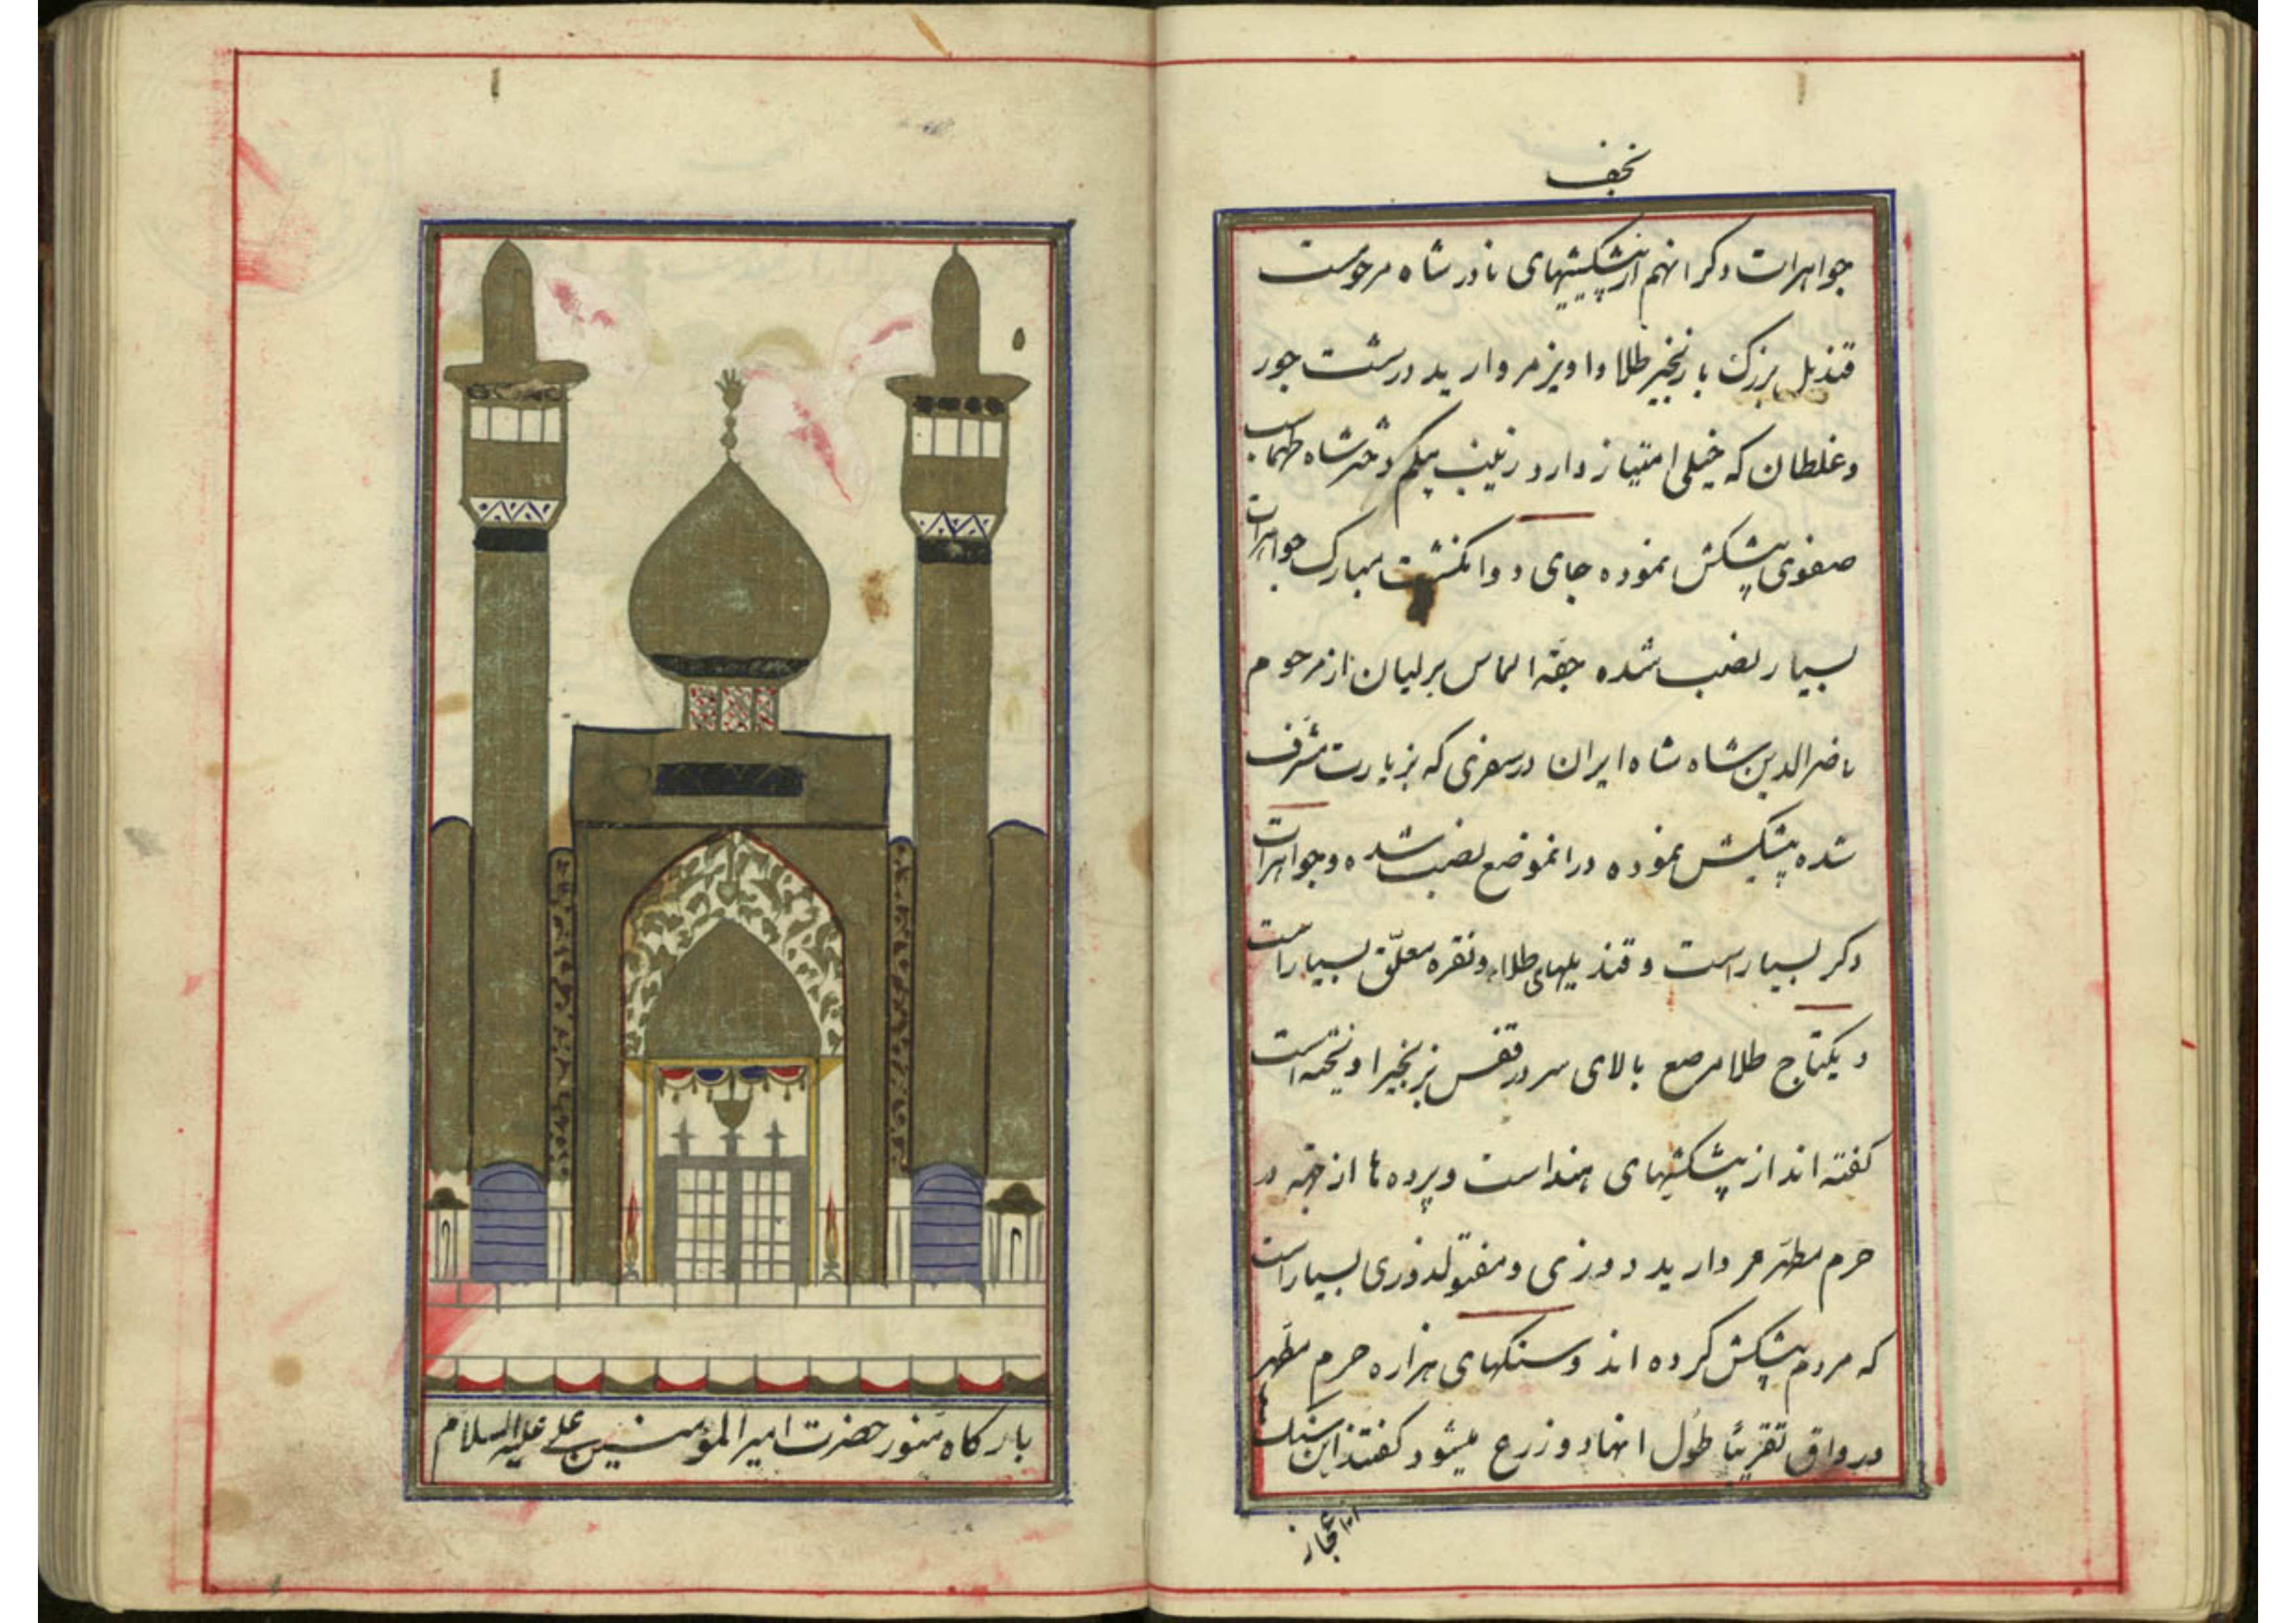 نجف
جواهرات دکر انهم از پیشکشیهای نادر شاه مرحومست
قندیل بزرک با زنجیر طلا واویز مروارید درشت جور
وغلطان که خیلی امتیاز دارد زینب بیکم دختر شاه طهماسب
صفوی پیشکش نموده جای دو انکشت مبارک جواهرات
بسیار نصب شده جقه الماس برلیان از مرحوم
ناصرالدین شاه شاه ایران در سفری که بزیارت مشرف
شده پیشکش نموده در انموضع نصب شده وجواهرات
دکر بسیار است و قندیلهای طلا ونقره معلّق بسیار است
و یکتاج طلا مرصع بالای سر در قفس بزنجیر اویخته است
کفته اند از پیشکشیهای هند است وپرده ها از جهة در
حرم مطهر مروارید دوزی ومفتولدوزی بسیار است
که مردم پیشکش کرده اند وسنکهای هزاره حرم مطهر
ورواق تقریبًا طول انها دو زرع میشود کفتند این سنک
بارکاه منور حضرت امیر المؤمنین علی علیه السلام